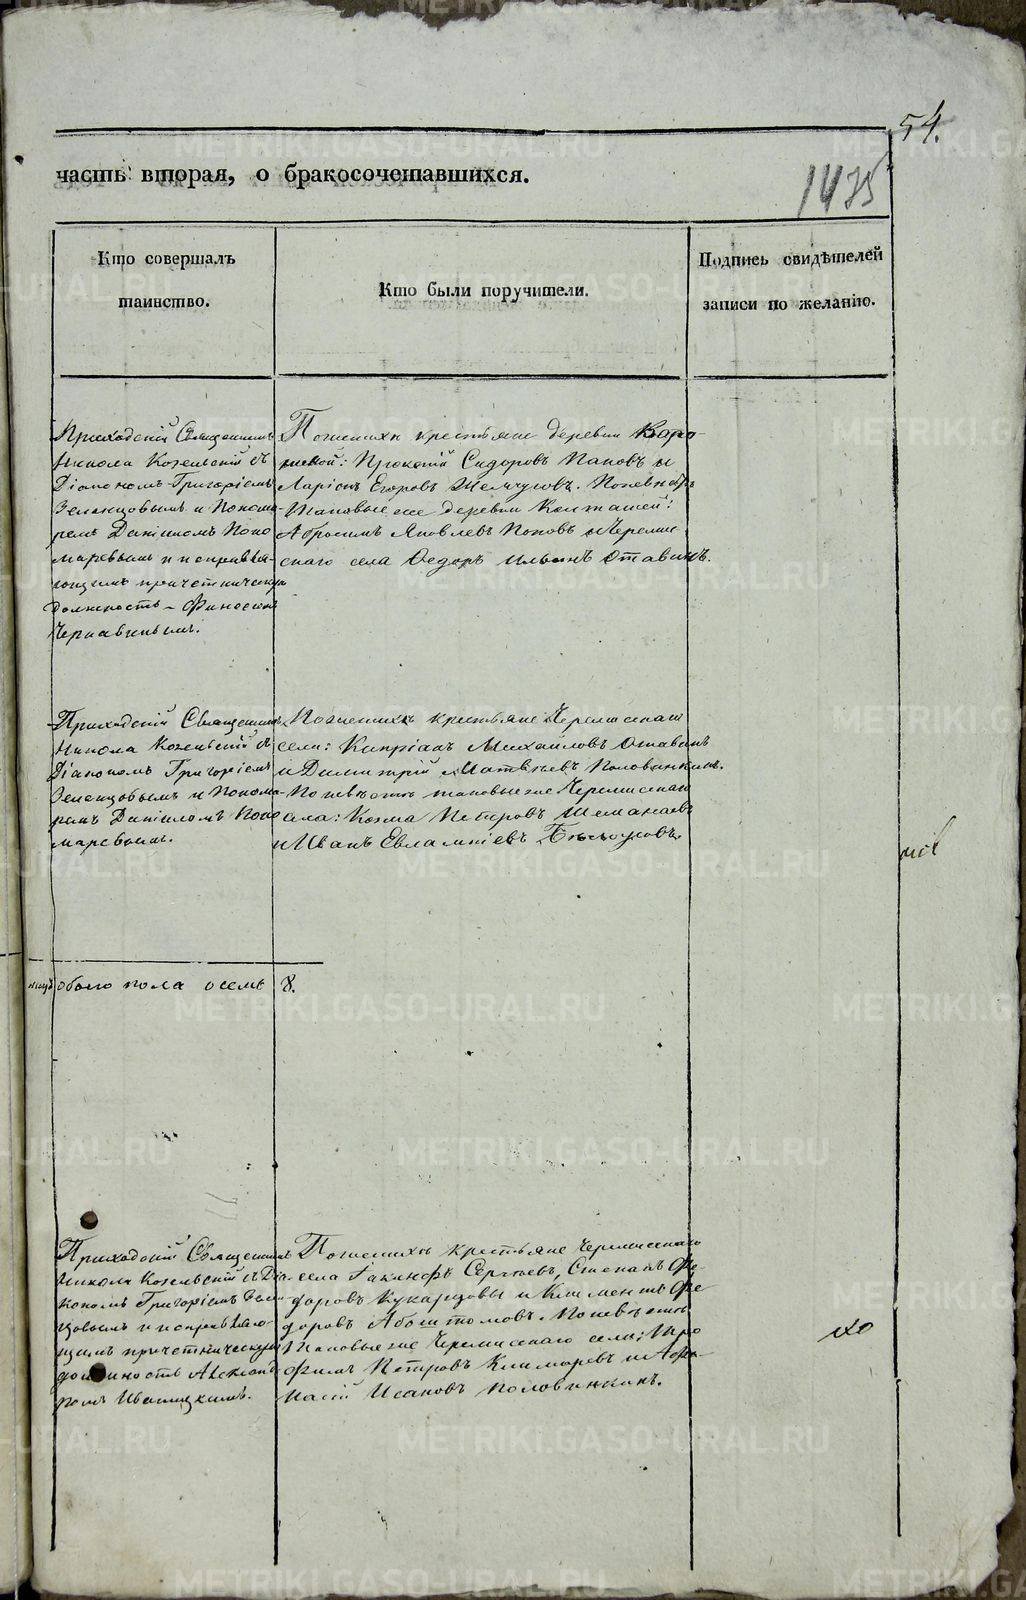 54.
часть вторая, о бракосочетавшихся.
1435
Кто совершалъ
таинство.
Кто были поручители.
Подпись свидѣтелей
записи по желанію.
Приходскій Священникъ
Никола Козельскій съ
Діакономъ Григоріемъ
Зеленцовымъ и Понома-
ремъ Даніиломъ Поно
маревымъ и исправля-
ющимъ причетническую
Должность –
Чернавинымъ.
По женихѣ крестьяне деревни
Сидоровъ Паповъ и
Ларіонъ Егоровъ По невѣстѣ
Таковые же деревни
Яковлевъ Поповъ и Черемис
скаго села Ѳедоръ Ильинъ Отавинъ.
Приходскій Священникъ
Никола Козельскій съ
Діакономъ Григоріемъ
Зеленцовымъ и Понома-
ремъ Даніиломъ Поно
маревымъ.
По женихѣ крестьяне Черемисскаго
села: Михайловъ Отавинъ
и Димитрій Матвѣевъ Половинкинъ.
По невѣстѣ таковые же Черемисскаго
села: Козма Петровъ Шеманаевъ
и Иванъ Евлампіевъ Бѣлоусовъ.
лицъ обоего пола осемь 8.
Приходскій Священникъ
Никола Козельскій съ Діа-
кономъ Григоріемъ Зелен
цовымъ и исправляю-
щимъ причетническую
должность Александ
ромъ Иваницкимъ.
По женихѣ крестьяне Черемисскаго
села Іакинфъ Сергѣевъ, Степанъ Ѳе-
доровъ Кукарцовы и Климентъ Ѳе-
доровъ По невѣстѣ
таковые же Черемисскаго села: Тро
фимъ Петровъ и Аѳа-
насій Исаковъ Половинкинъ.
METRIKI.GASO-URAL.RU